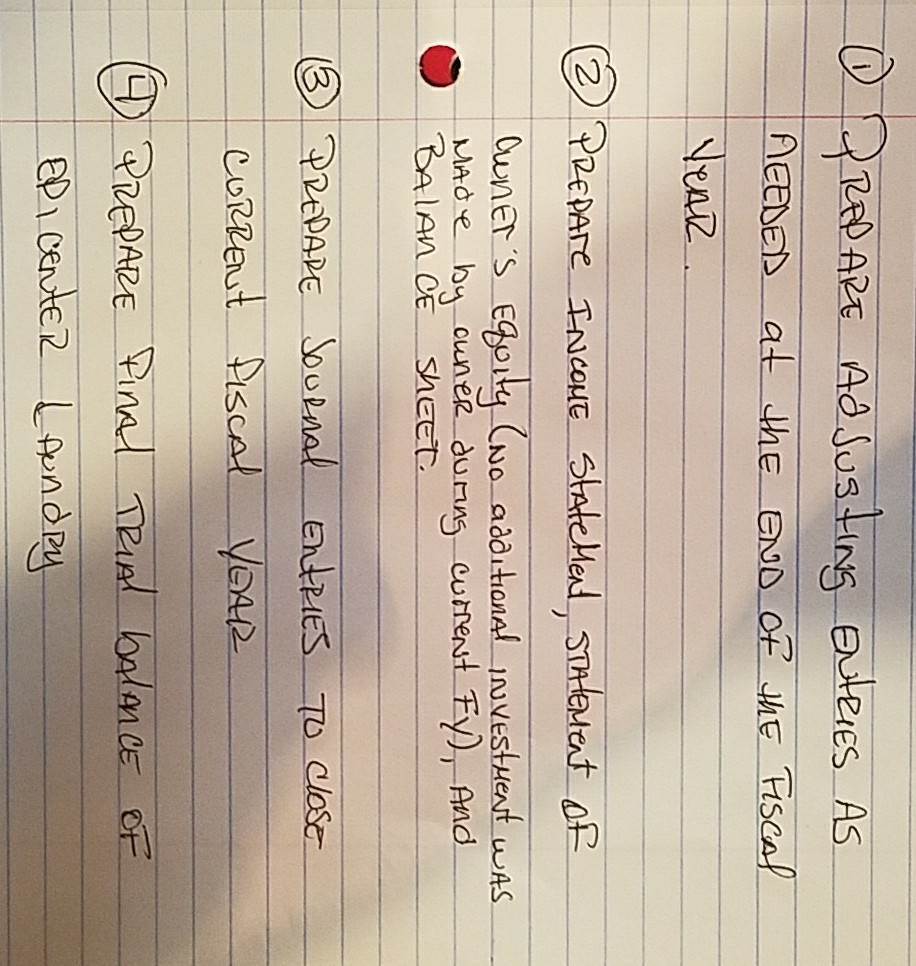 ① PREPARE AdJustING ENtRIES AS
NEEDED at the END OF the FISCAL
YEAR.
② PREPARE INCOME StAteMENt, STAtEMENT OF
OWNER'S EQUITY (NO additional INVESTMENT WAS
MAde by OWNER during CURRENT FY), And
BALANCE SHEET.
③ PREPARE JOURNAL ENtRIES TO CLOSE
CURRENT fISCAL YEAR
④ PREPARE FINAL TRIAL bALANCE OF
EPICENTER LAUNDRY